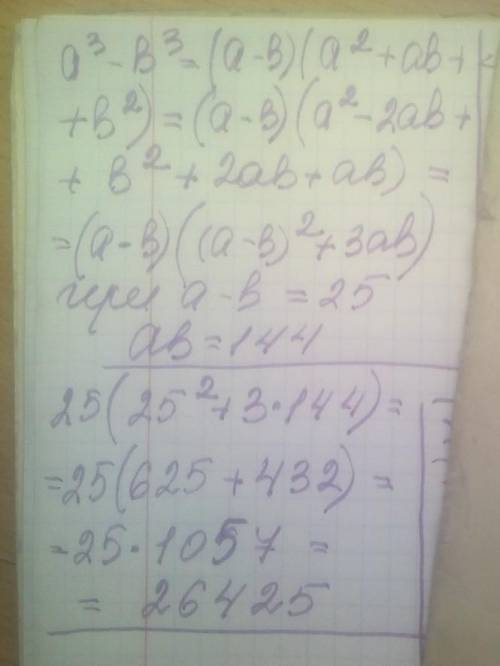 a³ - b³ = (a-b)(a² + ab +
+ b²) = (a-b)(a² - 2ab +
+ b² + 2ab + ab) =
= (a-b)((a-b)² + 3ab)
при a-b = 25
ab = 144
25(25² + 3·144) =
= 25(625 + 432) =
= 25·1057 =
= 26425